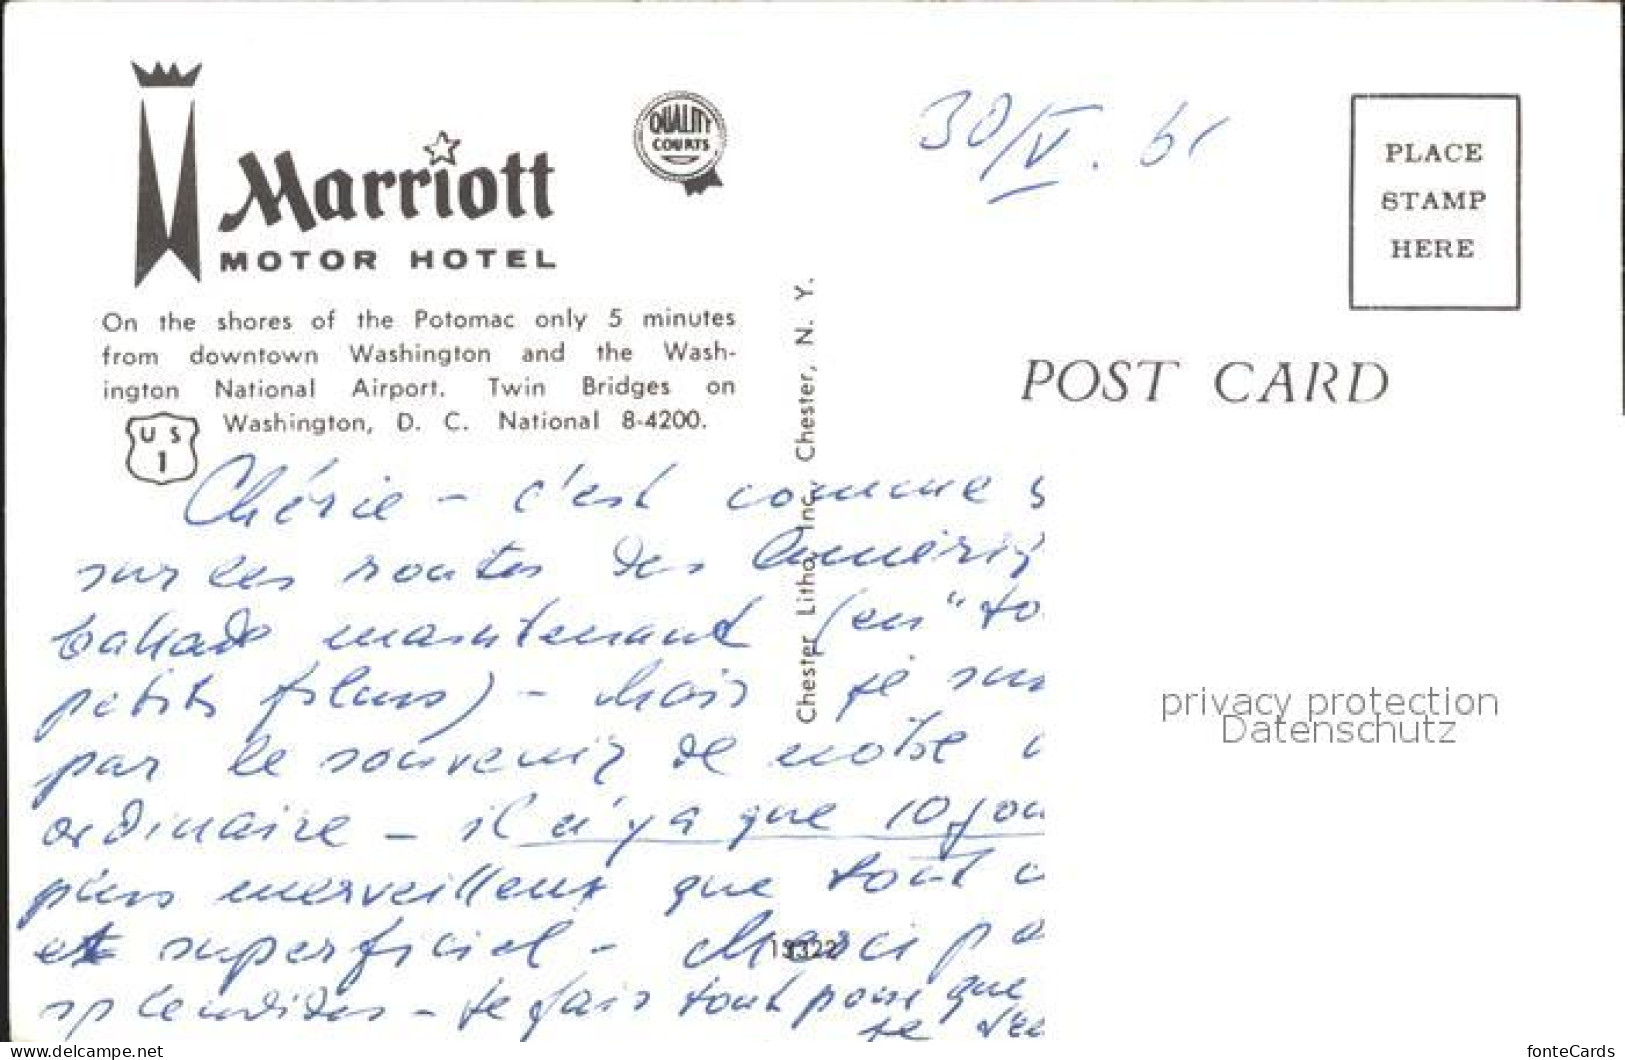 Marriott
MOTOR HOTEL
QUALITY
COURTS
On the shores of the Potomac only 5 minutes
from downtown Washington and the Wash-
ington National Airport. Twin Bridges on
Washington, D. C. National 8-4200.
U S
1
30/V. 61
PLACE
STAMP
HERE
POST CARD
Chester Litho, Inc., Chester, N. Y.
Chérie - c'est comme
sur les routes des
maintenant (en "
petits) - Mais je
par le souvenir de notre
ordinaire - il n'y a que 10
plus merveilleux que tout
et superficiel - Merci
splendides - je fais tout pour que
je
13322
privacy protection
Datenschutz
https://www.delcampe.net
fonteCards